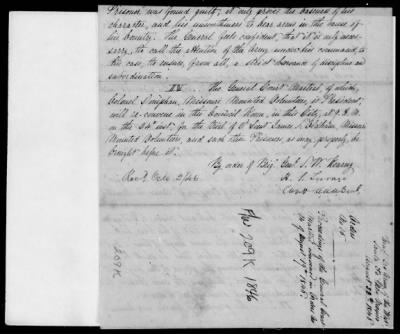 Prisoner was found guilty; it only proves the baseness of his
character, and his unworthiness to bear arms in the cause of
his Country. The General feels confident, that it is only neces-
sary, to call the attention of the Army under his command, to
this case, to ensure, from all, a strict observance of discipline and
subordination.
IV... The General Court Martial, of which,
Colonel Doniphan, Missouri Mounted Volunteers, is President,
will re-convene in the Council Room, in this City, at 9 A.M.
on the 24th inst; for the trial of 2d Lieut James S.
Mounted Volunteers, and such other Prisoners, as may, properly, be
brought before it.
By order of Brig. Genl. S. W. Kearny
H. S. Turner
Capt. A.A.A. Genl.
Recd. Octo 2/46
209 K 1846
Order
No. 15
Proceedings of the General Court
209 K